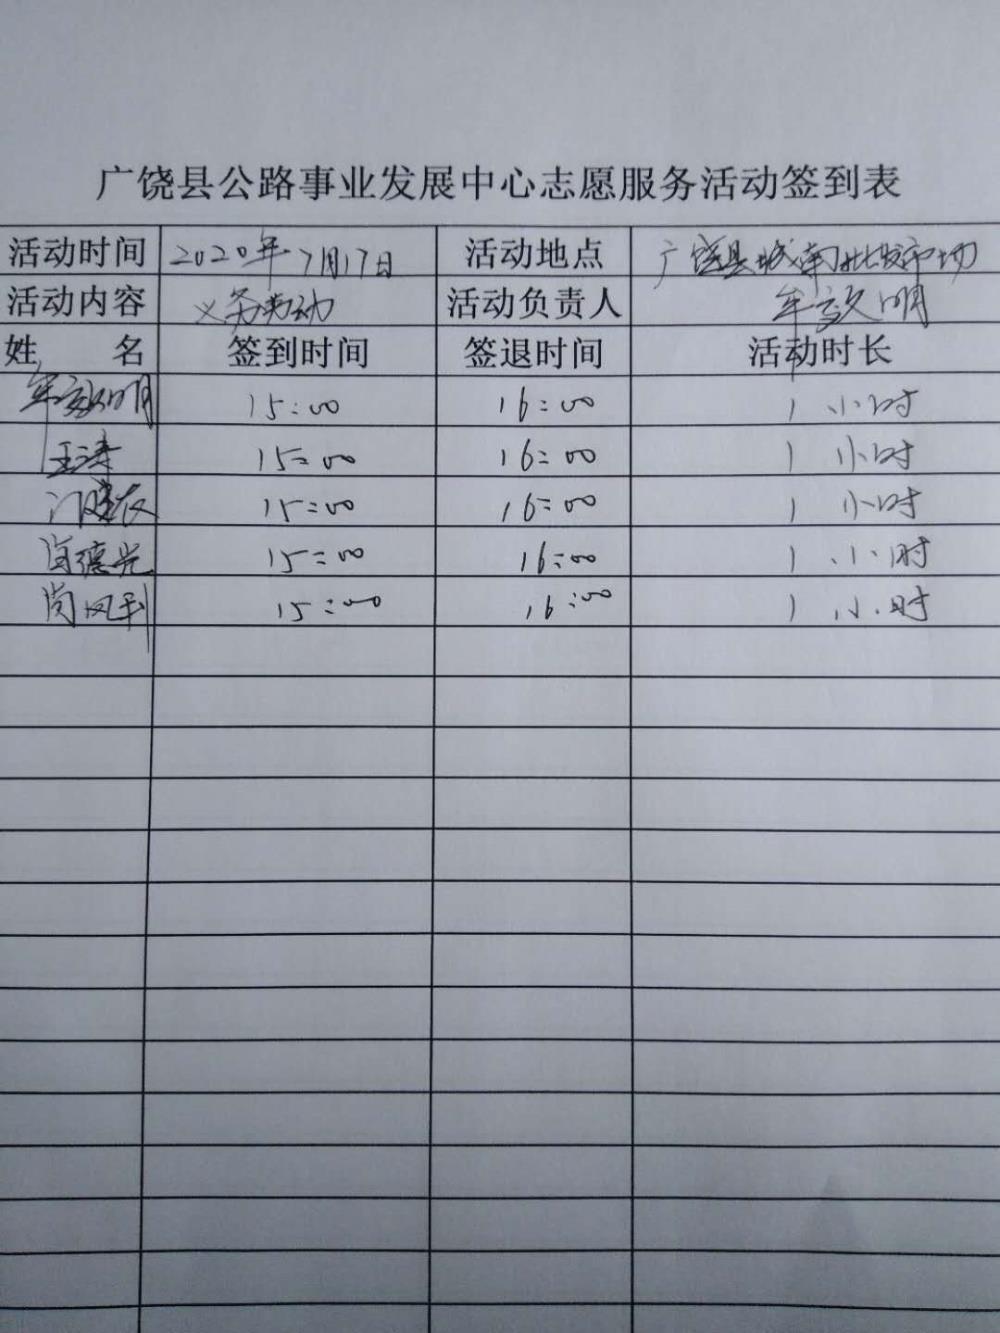 广饶县公路事业发展中心志愿服务活动签到表
活动时间 2020年7月17日 活动地点 广饶县城南批发市场
活动内容 义务劳动 活动负责人 牟效明
姓 名 签到时间 签退时间 活动时长
牟效明 15:00 16:00 1 小时
王涛 15:00 16:00 1 小时
15:00 16:00 1 小时
德光 15:00 16:00 1 小时
尚凤利 15:00 16:00 1 小时